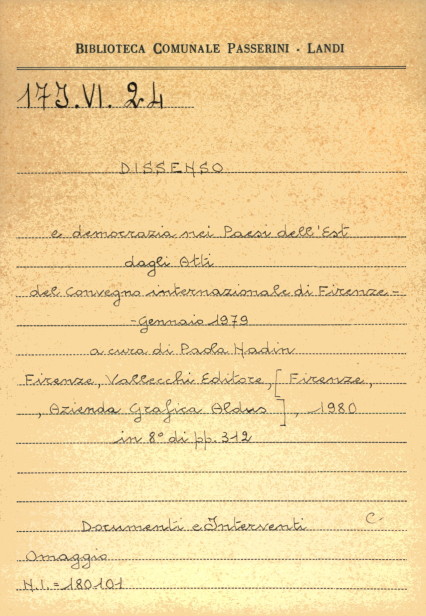 BIBLIOTECA COMUNALE PASSERINI - LANDI
17J.VI.24
DISSENSO
e democrazia nei Paesi dell'Est
dagli Atti
del Convegno internazionale di Firenze -
-Gennaio 1979
a cura di Paola Nadin
Firenze, Vallecchi Editore, [Firenze,
, Azienda Grafica Aldus], 1980
in 8° di pp. 312
Documenti e Interventi C.
Omaggio
N.I. = 180101